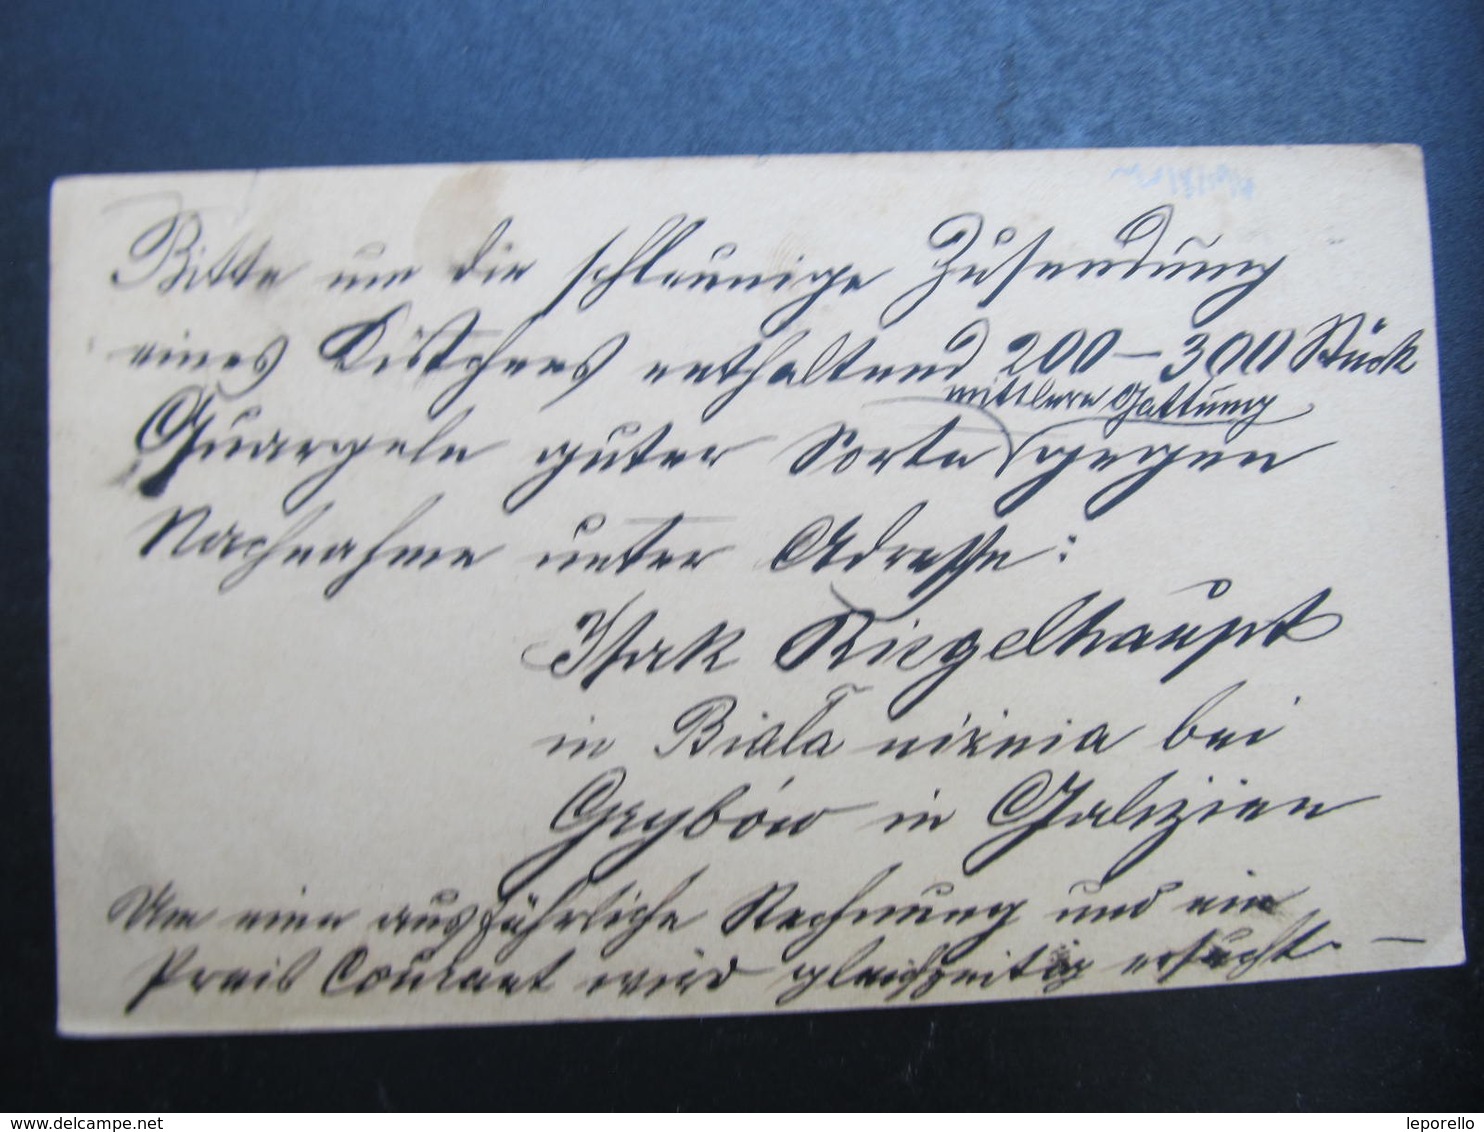 Bitte um die schleunige Zusendung
eines Kistchens enthaltend 200 – 300 Stück
mittlere Gattung
Quargeln guter Sorte gegen
Nachnahme unter Adresse:
Isak Riegelhaupt
in Biała niżnia bei
Grybów in Galizien
Um eine ausführliche Rechnung und ein
Preis Courant wird gleichzeitig ersucht –
www.delcampe.net
leporello